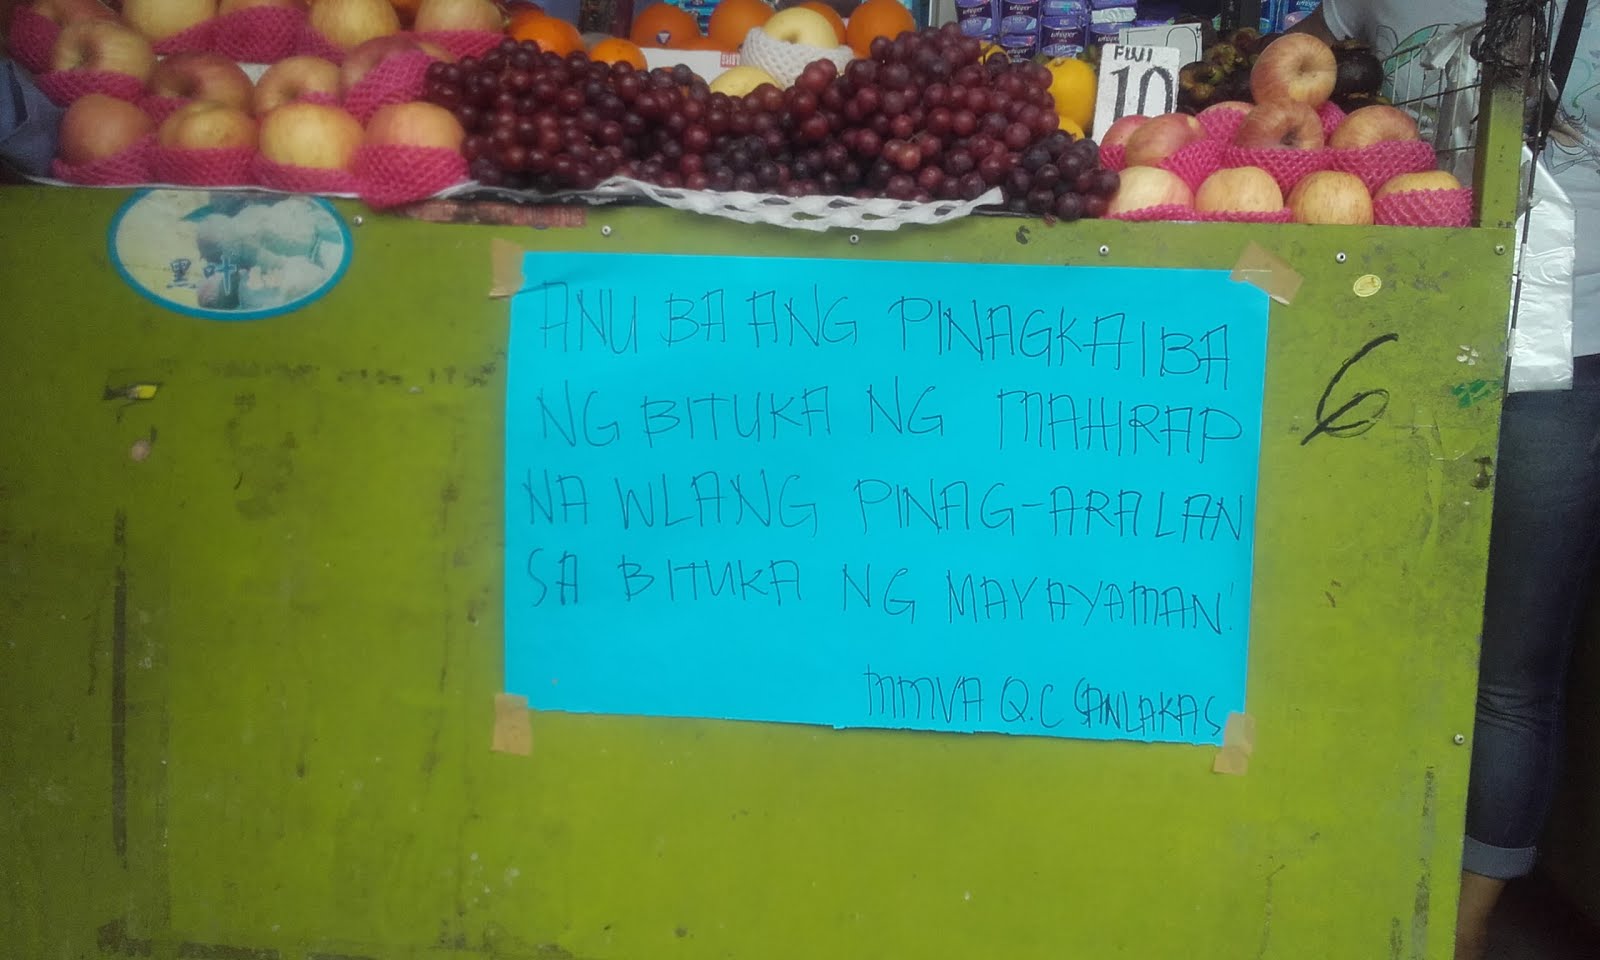 whisper
FUJI
10
黑叶
ANU BA ANG PINAGKAIBA
NG BITUKA NG MAHIRAP
NA WLANG PINAG-ARALAN
SA BITUKA NG MAYAYAMAN!
MMVA Q.C SANLAKAS
6